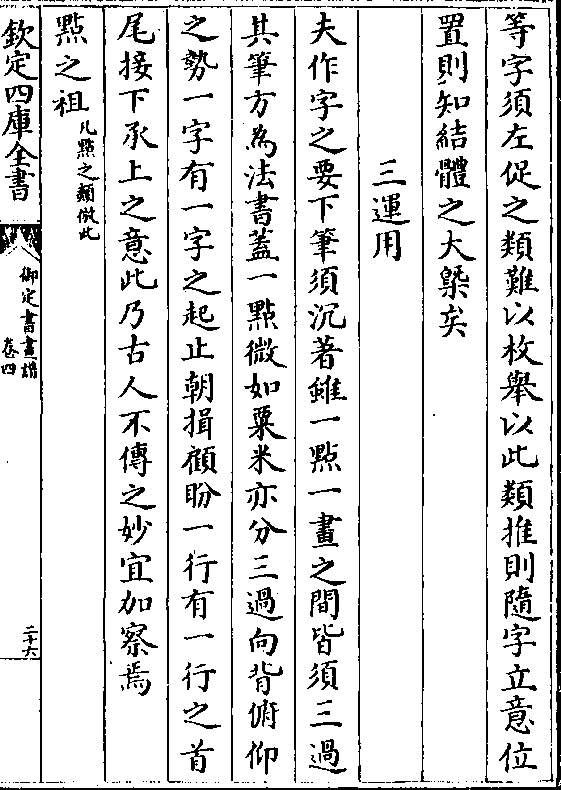 等字須左促之類難以枚舉以此類推則隨字立意位
置則知結體之大槩矣
三運用
夫作字之要下筆須沉著雖一點一畫之間皆須三過
其筆方為法書蓋一點微如粟米亦分三過向背俯仰
之勢一字有一字之起止朝揖顧盼一行有一行之首
尾接下承上之意此乃古人不傳之妙宜加察焉
點之祖凡點之類倣此
欽定四庫全書
御定書畫譜
卷四
二十六